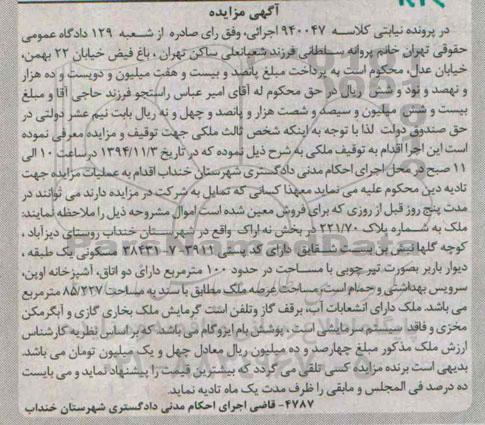 آگهی مزایده
در پرونده نیابتی کلاسه ۹۴۰۰۴۷ اجرائی، وفق رای صادره از شعبه ۱۲۹ دادگاه عمومی
حقوقی تهران خانم پروانه سلطانی فرزند شعبانعلی ساکن تهران ، باغ فیض خیابان ۲۲ بهمن،
خیابان عدل، محکوم است به پرداخت مبلغ پانصد و بیست و هفت میلیون و دویست و ده هزار
و نهصد و نود و شش ریال در حق محکوم له آقای امیر عباس راستجو فرزند حاجی آقا و مبلغ
بیست و شش میلیون و سیصد و شصت هزار و پانصد و چهل و نه ریال بابت نیم عشر دولتی در
حق صندوق دولت لذا با توجه به اینکه شخص ثالث ملکی جهت توقیف و مزایده معرفی نموده
است این اجرا اقدام به توقیف ملکی به شرح ذیل نموده که در تاریخ ۱۳۹۴/۱۱/۳ درساعت ۱۰ الی
۱۱ صبح در محل اجرای احکام مدنی دادگستری شهرستان خنداب اقدام به عملیات مزایده جهت
تادیه دین محکوم علیه می نماید معهذا کسانی که تمایل به شرکت در مزایده دارند می توانند در
مدت پنج روز قبل از روزی که برای فروش معین شده است اموال مشروحه ذیل را ملاحظه نمایند:
ملک به شماره پلاک ۲۲۱/۷۰ در بخش نه اراک واقع در شهرستان خنداب روستای دیزآباد ،
کوچه گلها نبش بن بست شقایق دارای کد پستی ۳۹۱۱-۷-۳۸۴۳۱ مسکونی یک طبقه ،
دیوار باربر بصورت تیر چوبی با مساحت در حدود ۱۰۰ مترمربع دارای دو اتاق، آشپزخانه اوپن،
سرویس بهداشتی و حمام است، مساحت عرصه ملک مطابق با سند به مساحت ۸۵/۲۲۷ مترمربع
می باشد. ملک دارای انشعابات آب، برق، گاز و تلفن است گرمایش ملک بخاری گازی و آبگرمکن
مخزی و فاقد سیستم سرمایشی است ، پوشش بام ایزوگام می باشد. که بر اساس نظریه کارشناس
ارزش ملک مذکور مبلغ چهارصد و ده میلیون ریال معادل چهل و یک میلیون تومان می باشد.
بدیهی است برنده مزایده کسی تلقی می گردد که بیشترین قیمت را پیشنهاد نماید و می بایست
ده درصد فی المجلس و مابقی را ظرف مدت یک ماه تادیه نماید.
۴۷۸۷- قاضی اجرای احکام مدنی دادگستری شهرستان خنداب